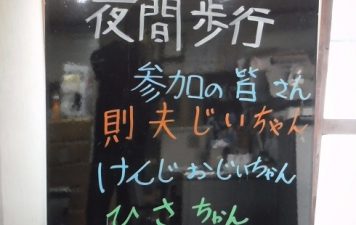 夜間歩行
参加の皆さん
則夫じいちゃん
けんじおじいちゃん
ひさちゃん